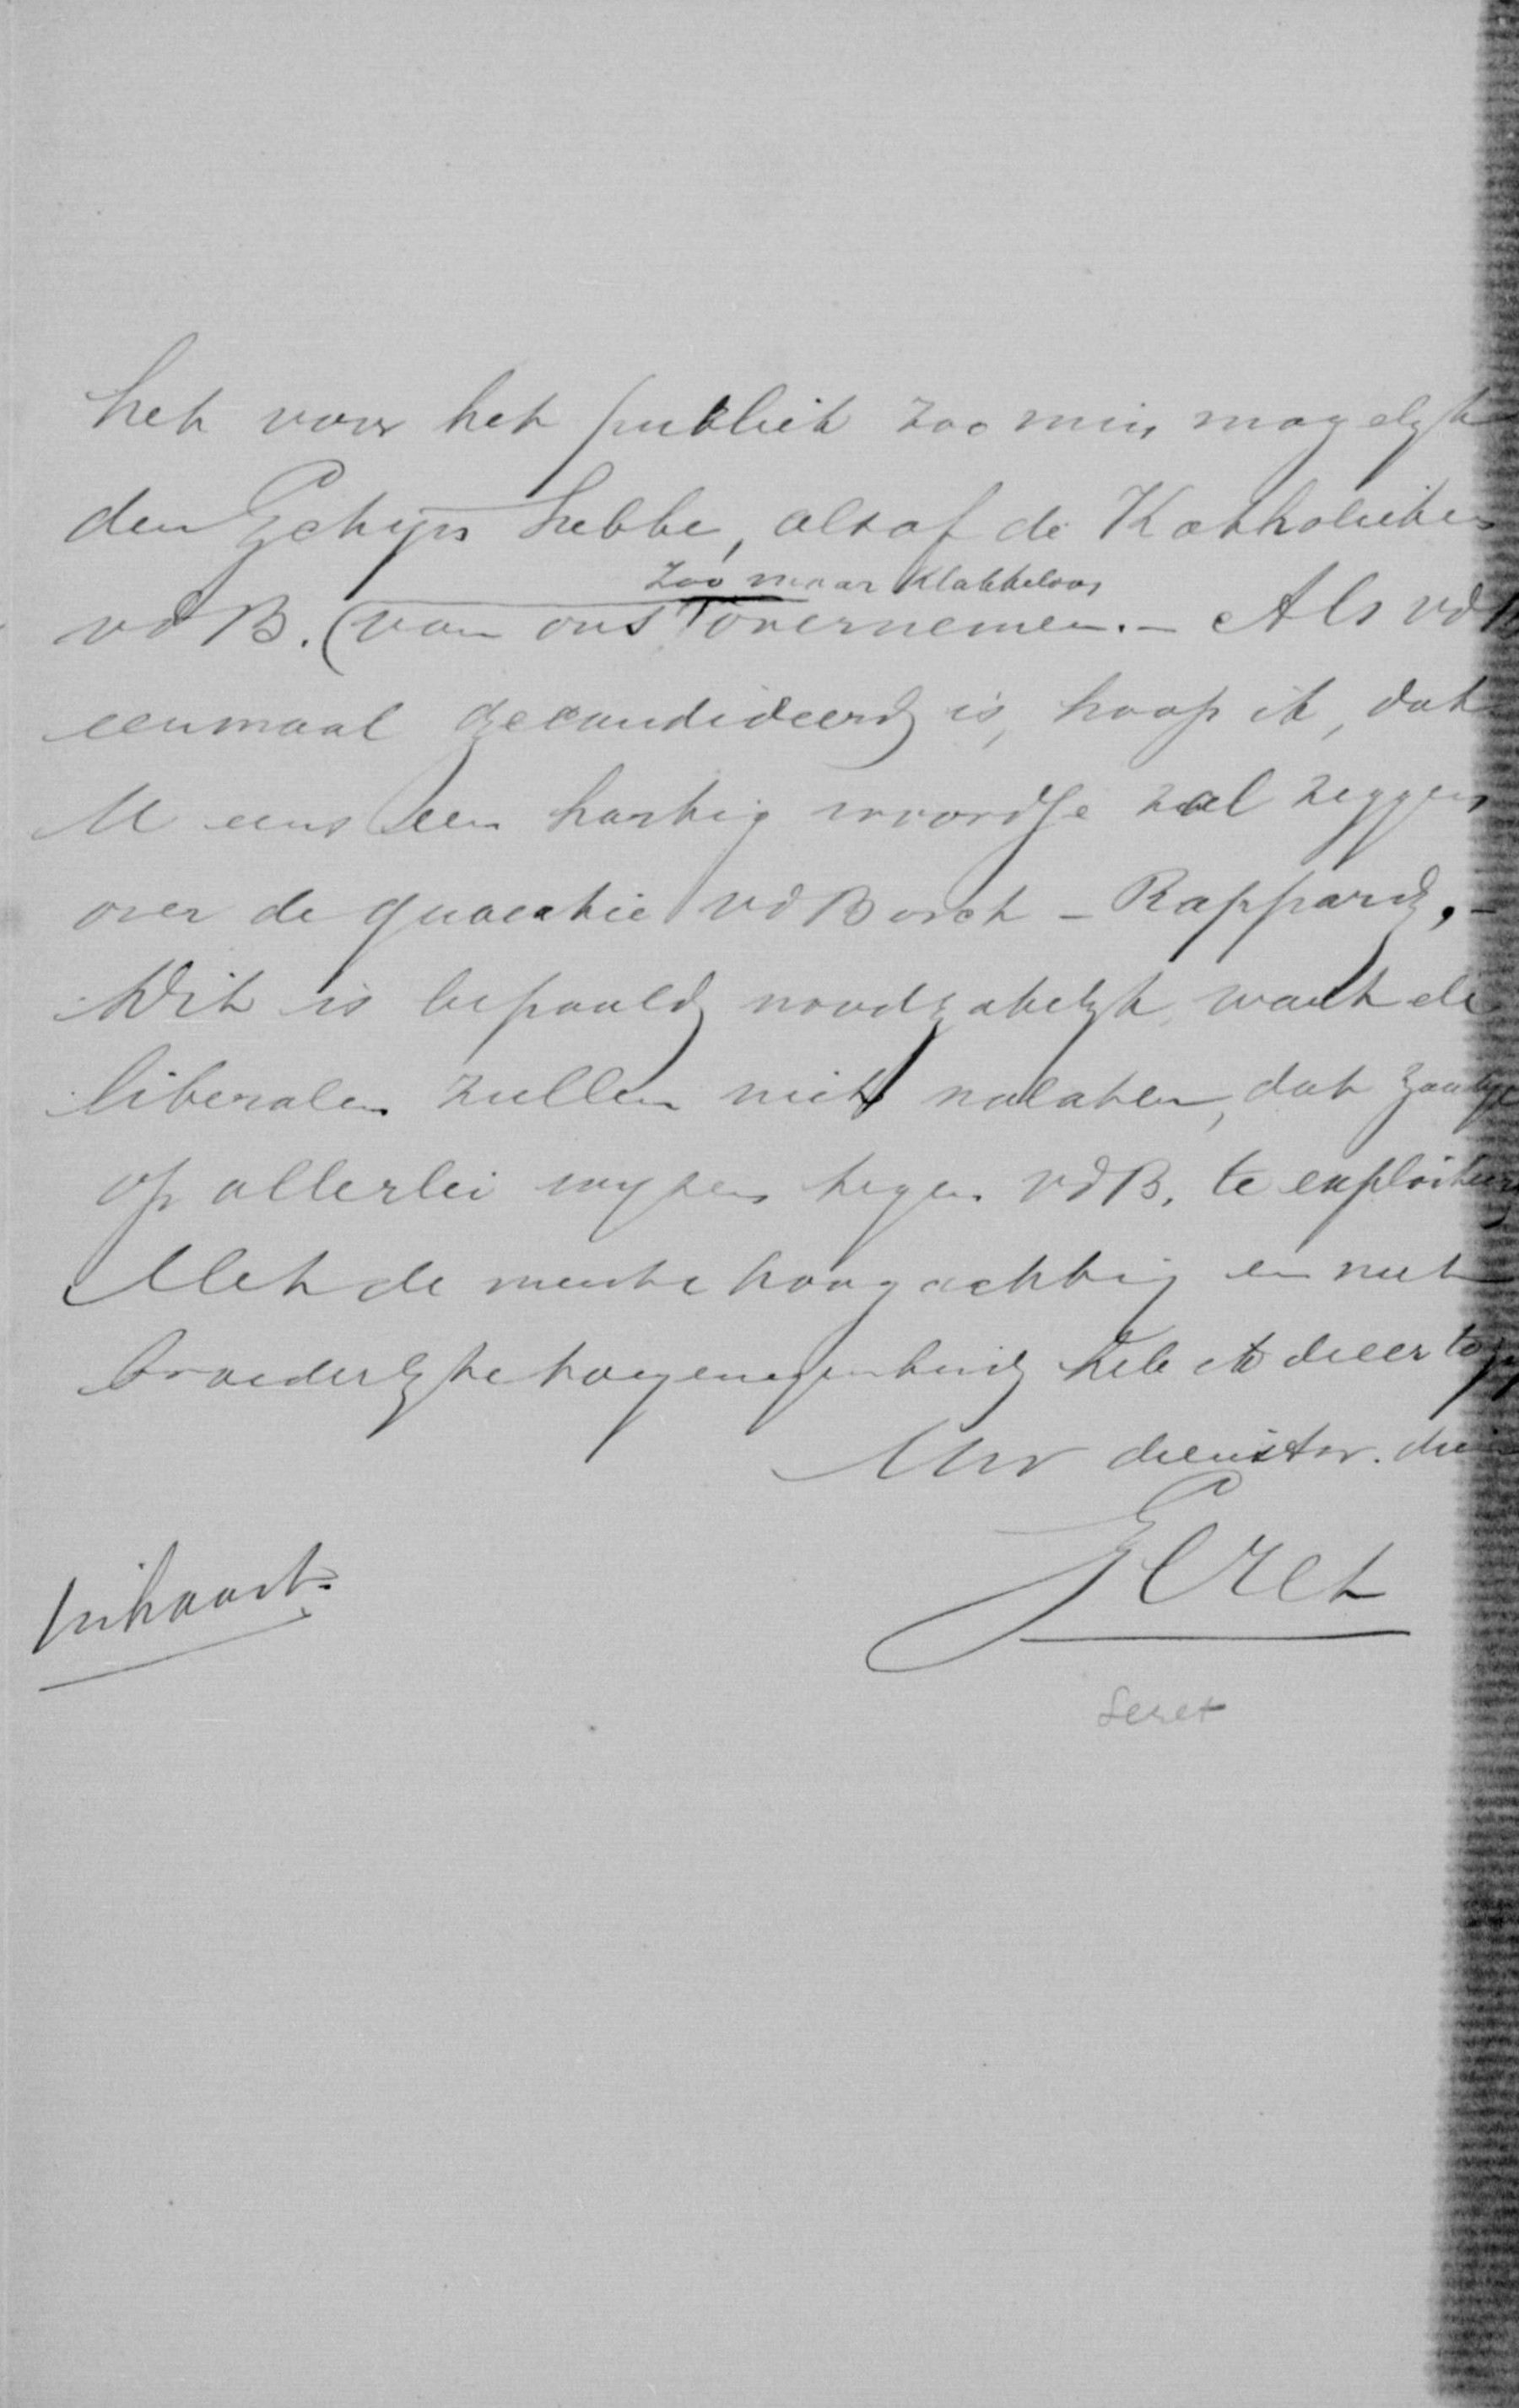 het voor het publiek zoo min mogelyk
den Schyn hebbe, alsof de Katholieken
zoo maar klakkeloos
vd B. (van ons overnemen. - Als vd B
eenmaal gecandideerd is, hoop ik, dat
U eens een hartig woordje zal zeggen
over de quaestie vd Bosch - Rappard. -
Dit is bepaald noodzakelyk, want de
liberalen zullen niet nalaten, dat zaakje
op allerlei wyzen tegen vd B. te exploiteeren
Met de meeste hoogachting en met
broederlyke toegenegenheid heb ik de eer te zyn
Uw dienstw. dien
Seret
in haast.
Seret